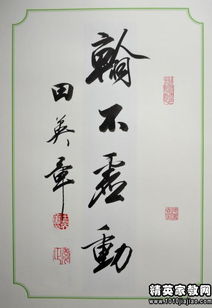 翰不虚動
田英章
精英家教网
www.1010jiajiao.com